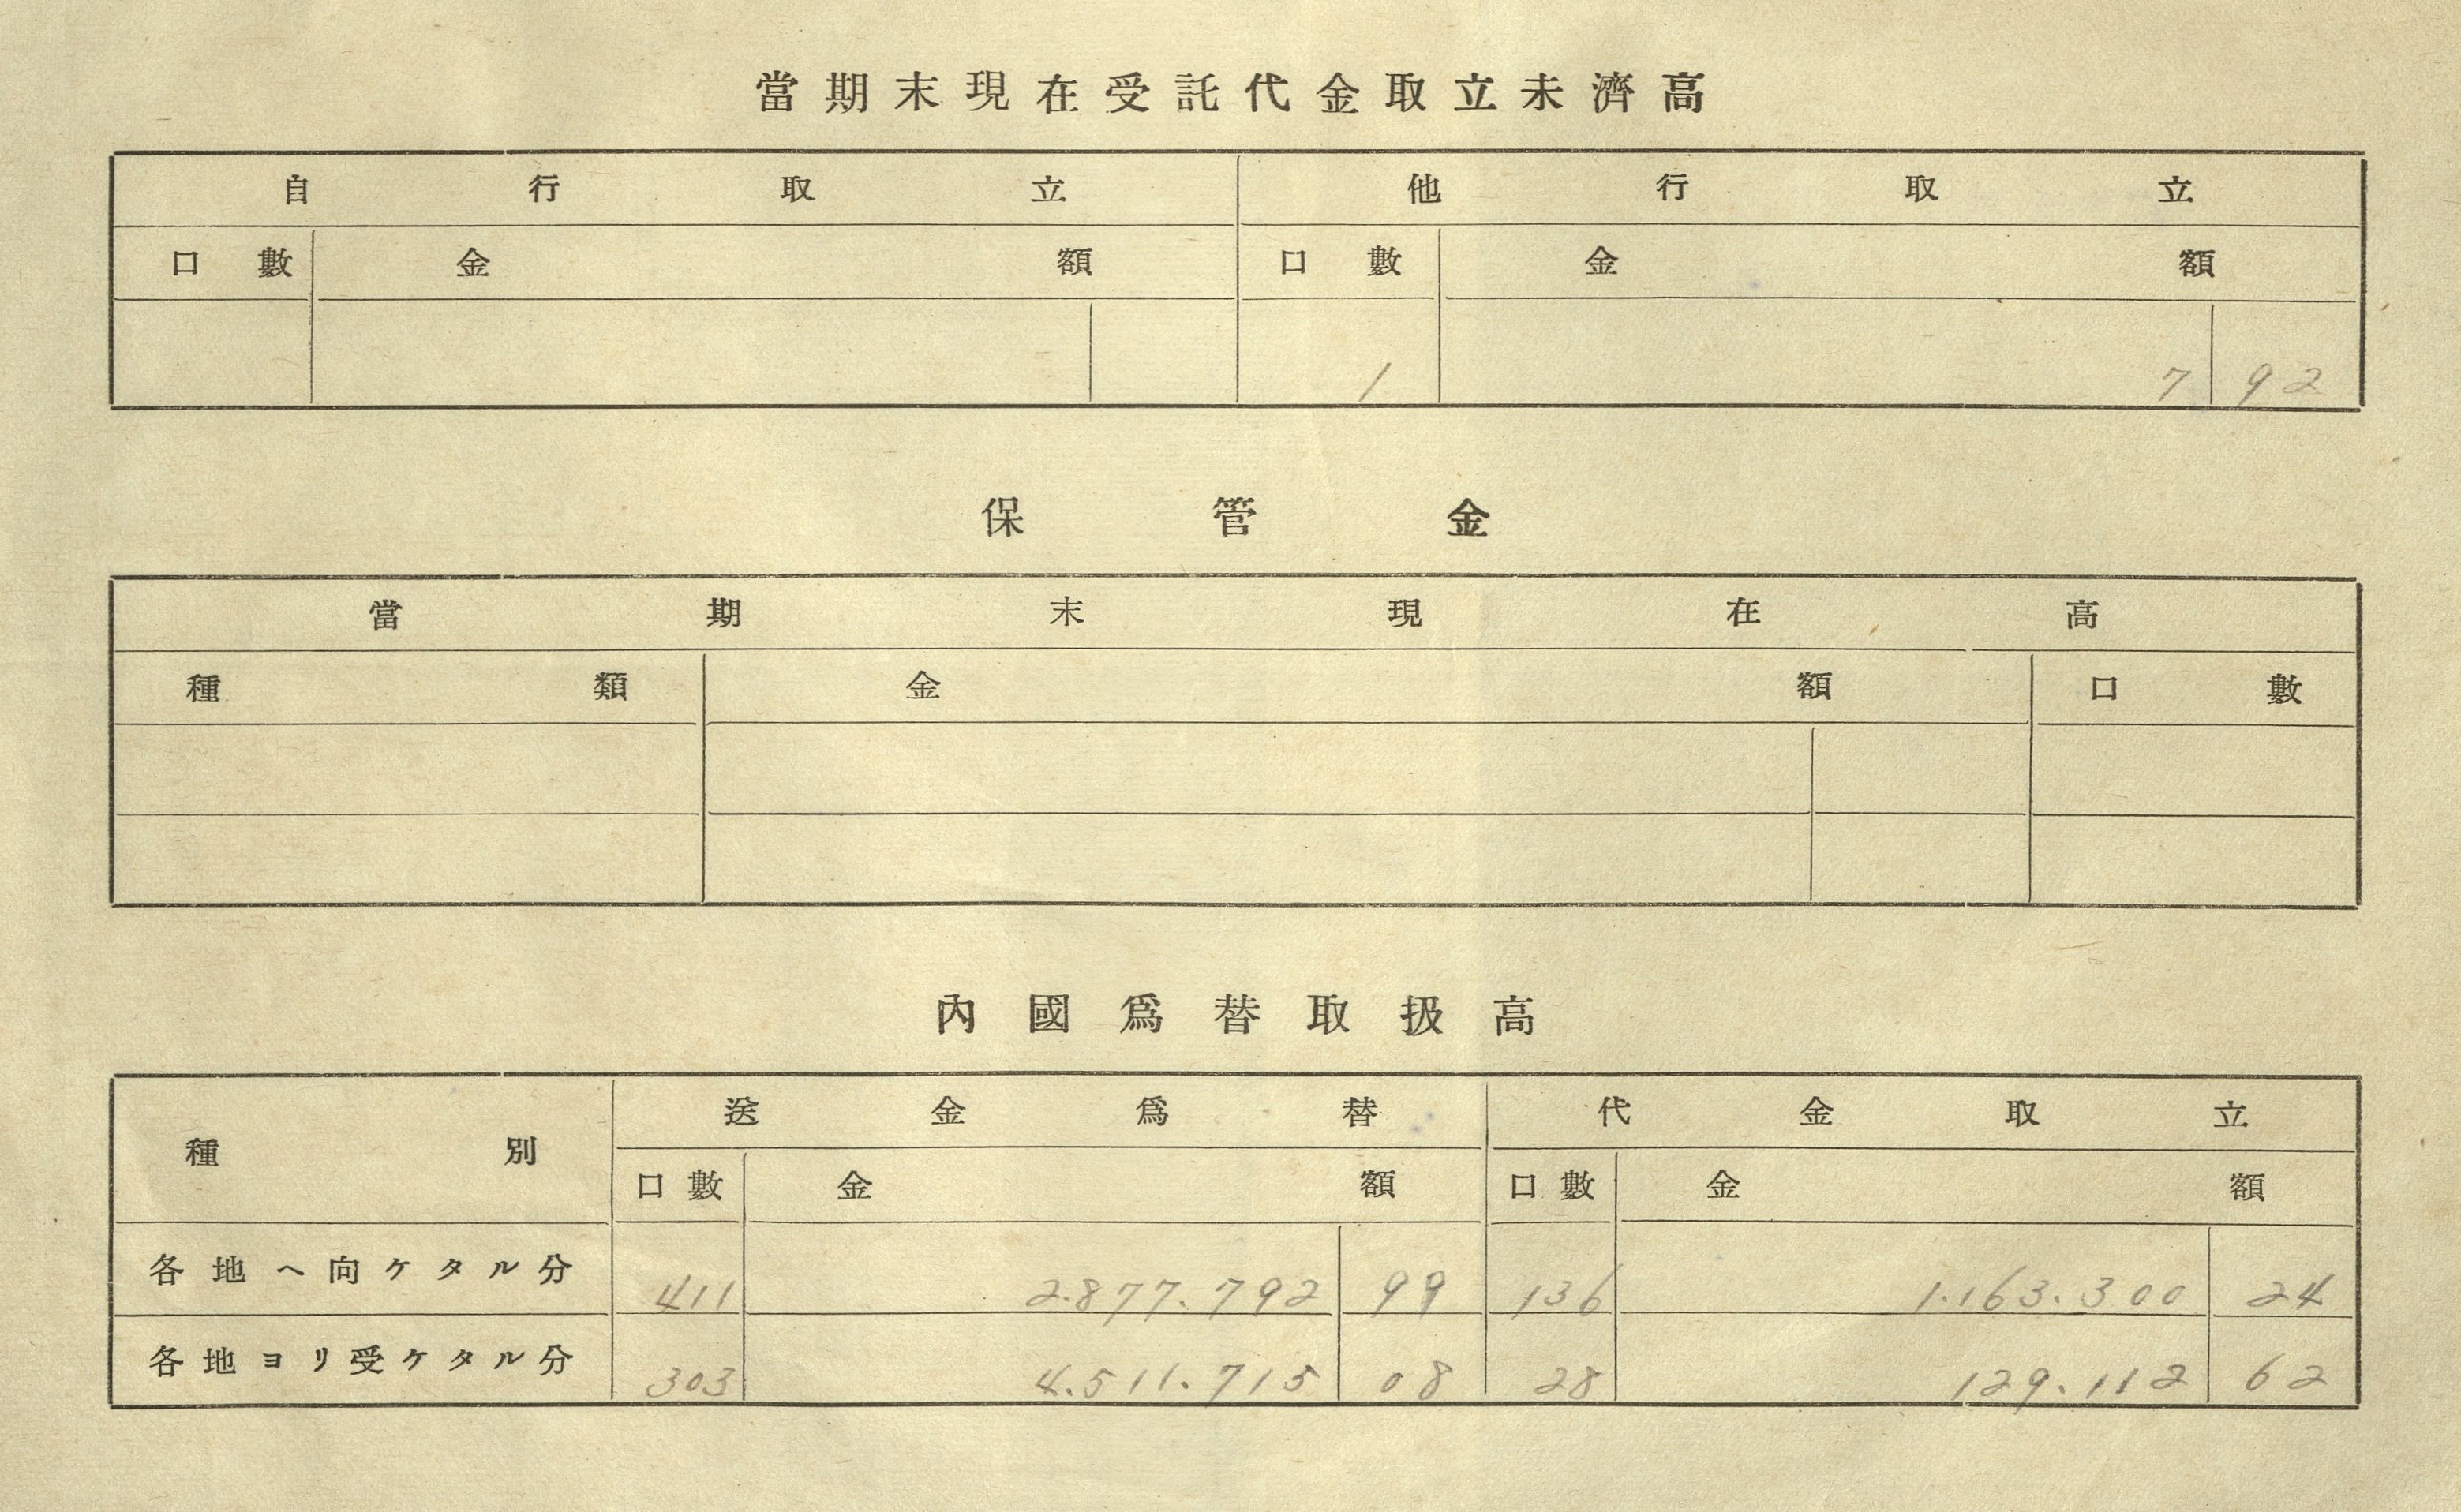 當期末現在受託代金取立未濟高
自行取立 他行取立
口數 金額 口數 金額
1 7 92
保管金
當期末現在高
種類 金額 口數
內國爲替取扱高
種別 送金爲替 代金取立
口數 金額 口數 金額
各地へ向ケタル分 411 2.877.792 99 136 1.163.300 24
各地ヨリ受ケタル分 303 4.511.715 08 28 129.112 62